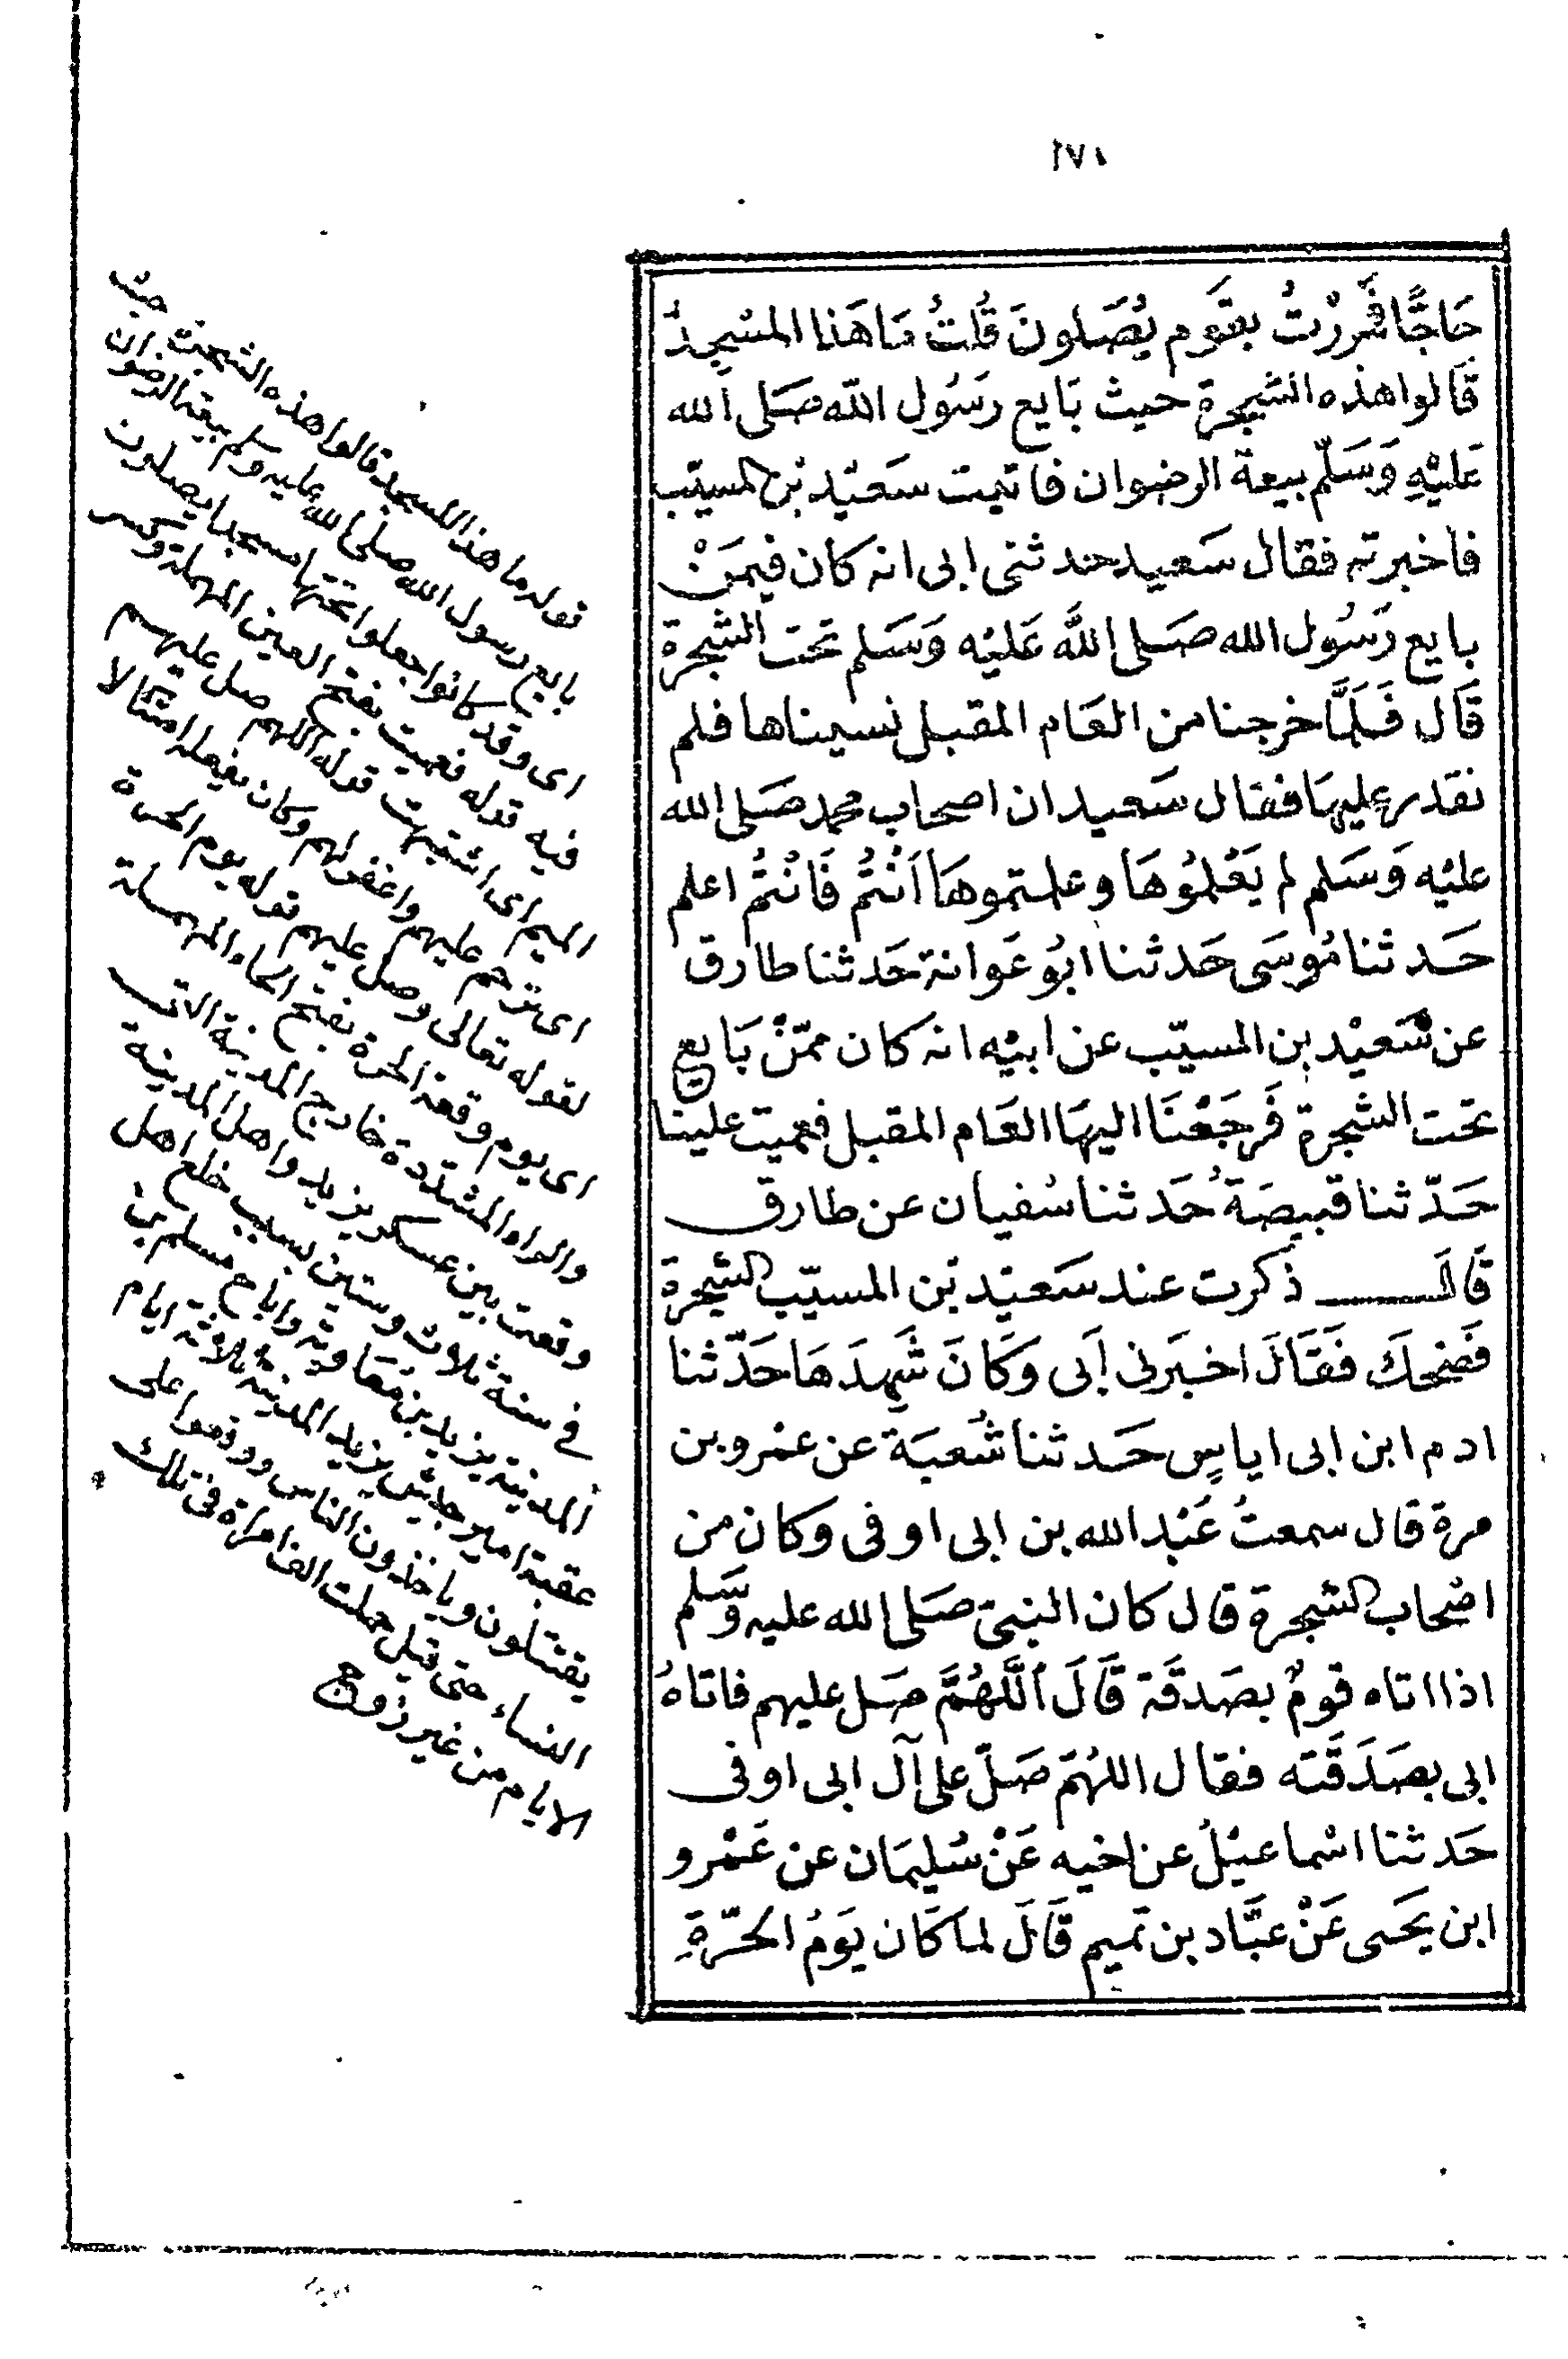 ١٧١
حَاجًّا فَمَررْتُ بقَوم يُصَلونَ قُلتُ مَا هَذا المسْجِدُ
قَالوا هذه الشجرة حيث بَايع رسَُول اللّه صَلى الله
عَليْهِ وَسَلّم بيعة الرضوان فاتيت سَعيْد بْن المسيّب
فاخبرته فقال سَعيد حدثنى ابى انه كان فيمَنْ
بايع رسَُول الله صَلى اللّه عَليْه وَسَلم تحت الشجرة
قَال فَلَمَّا خرجنا من العَام المقبل نسيناها فلم
نقدر عليهَا فقال سَعيد ان اصحاب محمد صَلى الله
عليْه وَسَلم لم يَعْلمُوهَا وعلمتموهَا اَنْتُمْ فَانْتُمْ اعلم
حَدثنا مُوسَى حَدثنا ابُو عَوانة حَدثنا طارق
عن سَعيْد بن المسيّب عن ابيْه انه كان ممّنْ بَايع
تحت الشجرة فَرجَعْنَا اليهَا العَام المقبل فعميت علينا
حَدّثنا قبيصَةُ حَدثنا سُفيان عن طارق
قَالَ ذكرت عند سَعيْد بْن المسيّب الشجرة
فَضحكَ فَقَالَ اخبَرنى اَبى وَكَانَ شَهِدَهَا حَدّثنا
ادم ابن ابى اياسٍ حَدثنا شُعبَة عن عمْرو بن
مرة قال سمعتُ عَبْد الله بن ابى اوفى وكان من
اصْحاب الشجرة قال كان النبىّ صَلى الله عليه وسَلم
اذا اتاه قومٌ بصَدقَة قَالَ اَللَّهُمَّ صَل عليهم فاتاهُ
ابى بصَدَقَته فقال اللهُمّ صَلّ على آل ابى اوفى
حَدثنا اسْماعيْلُ عن اخيه عَنْ سُليمَان عن عَمْرو
ابن يحَيى عَنْ عبَّاد بن تَميم قَالَ لما كَان يَومُ الحَرّةِ
قوله ما هذا المسجد قالوا هذه الشجرة حيث
بايع رسول الله صلى الله عليه وسلم بيعة الرضوان
اى وقد كانوا جعلوا تحتها مسجدا يصلون
فيه قوله فعميت بفتح العين المهملة وكسر
الميم اى اشتبهت قوله اللهم صل عليهم
اى ترحم عليهم واغفر لهم وكان يفعله امتثالا
لقوله تعالى وصل عليهم قوله يوم الحرة
اى يوم وقعة الحرة بفتح الحاء المهملة
والراء المشددة خارج المدينة التى
وقعت بين عسكر يزيد واهل المدينة
فى سنة ثلاث وستين بسبب خلع اهل
المدينة يزيد بن معاوية واباح مسلم بن
عقبة امير جيش يزيد المدينة ثلاثة ايام
يقتلون وياخذون الناس ووقعوا على
النساء حتى قيل حملت الف امراة فى تلك
الايام من غير زوج